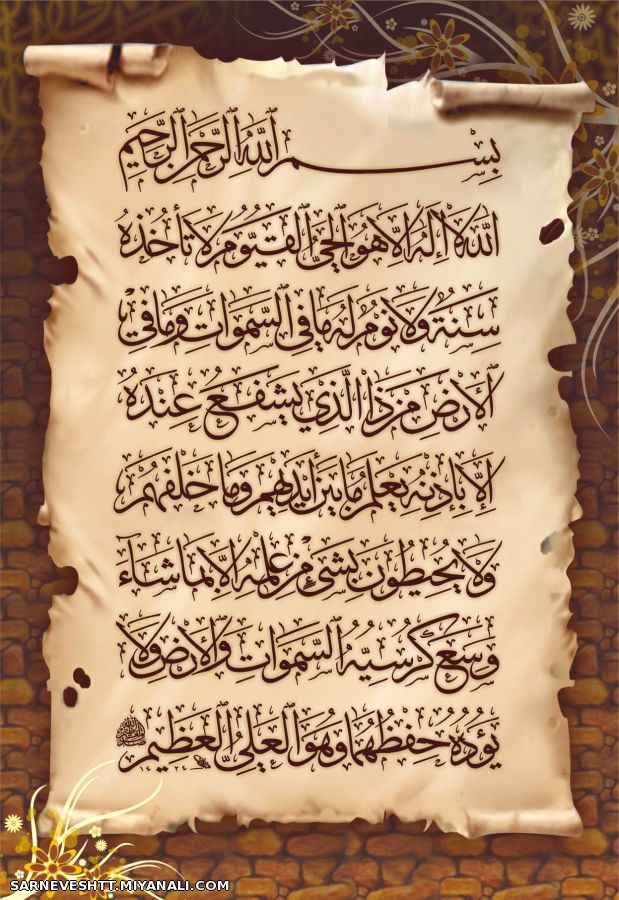 بِسْمِ اللَّهِ الرَّحْمَنِ الرَّحِيمِ
اللَّهُ لَا إِلَهَ إِلَّا هُوَ الْحَيُّ الْقَيُّومُ لَا تَأْخُذُهُ
سِنَةٌ وَلَا نَوْمٌ لَهُ مَا فِي السَّمَوَاتِ وَمَا فِي
الْأَرْضِ مَنْ ذَا الَّذِي يَشْفَعُ عِنْدَهُ
إِلَّا بِإِذْنِهِ يَعْلَمُ مَا بَيْنَ أَيْدِيهِمْ وَمَا خَلْفَهُمْ
وَلَا يُحِيطُونَ بِشَيْءٍ مِنْ عِلْمِهِ إِلَّا بِمَا شَاءَ
وَسِعَ كُرْسِيُّهُ السَّمَوَاتِ وَالْأَرْضَ وَلَا
يَئُودُهُ حِفْظُهُمَا وَهُوَ الْعَلِيُّ الْعَظِيمُ
SARNEVESHTT.MIYANALI.COM